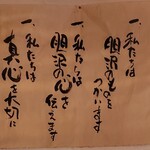 一、私たちは
胆沢のものを
つかいます
一、私たちは
胆沢の心を
伝えます
一、私たちは
真心を大切に